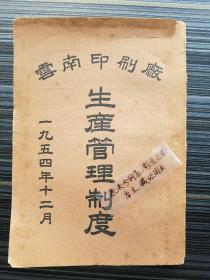 雲南印刷廠
生產管理制度
一九五四年十二月